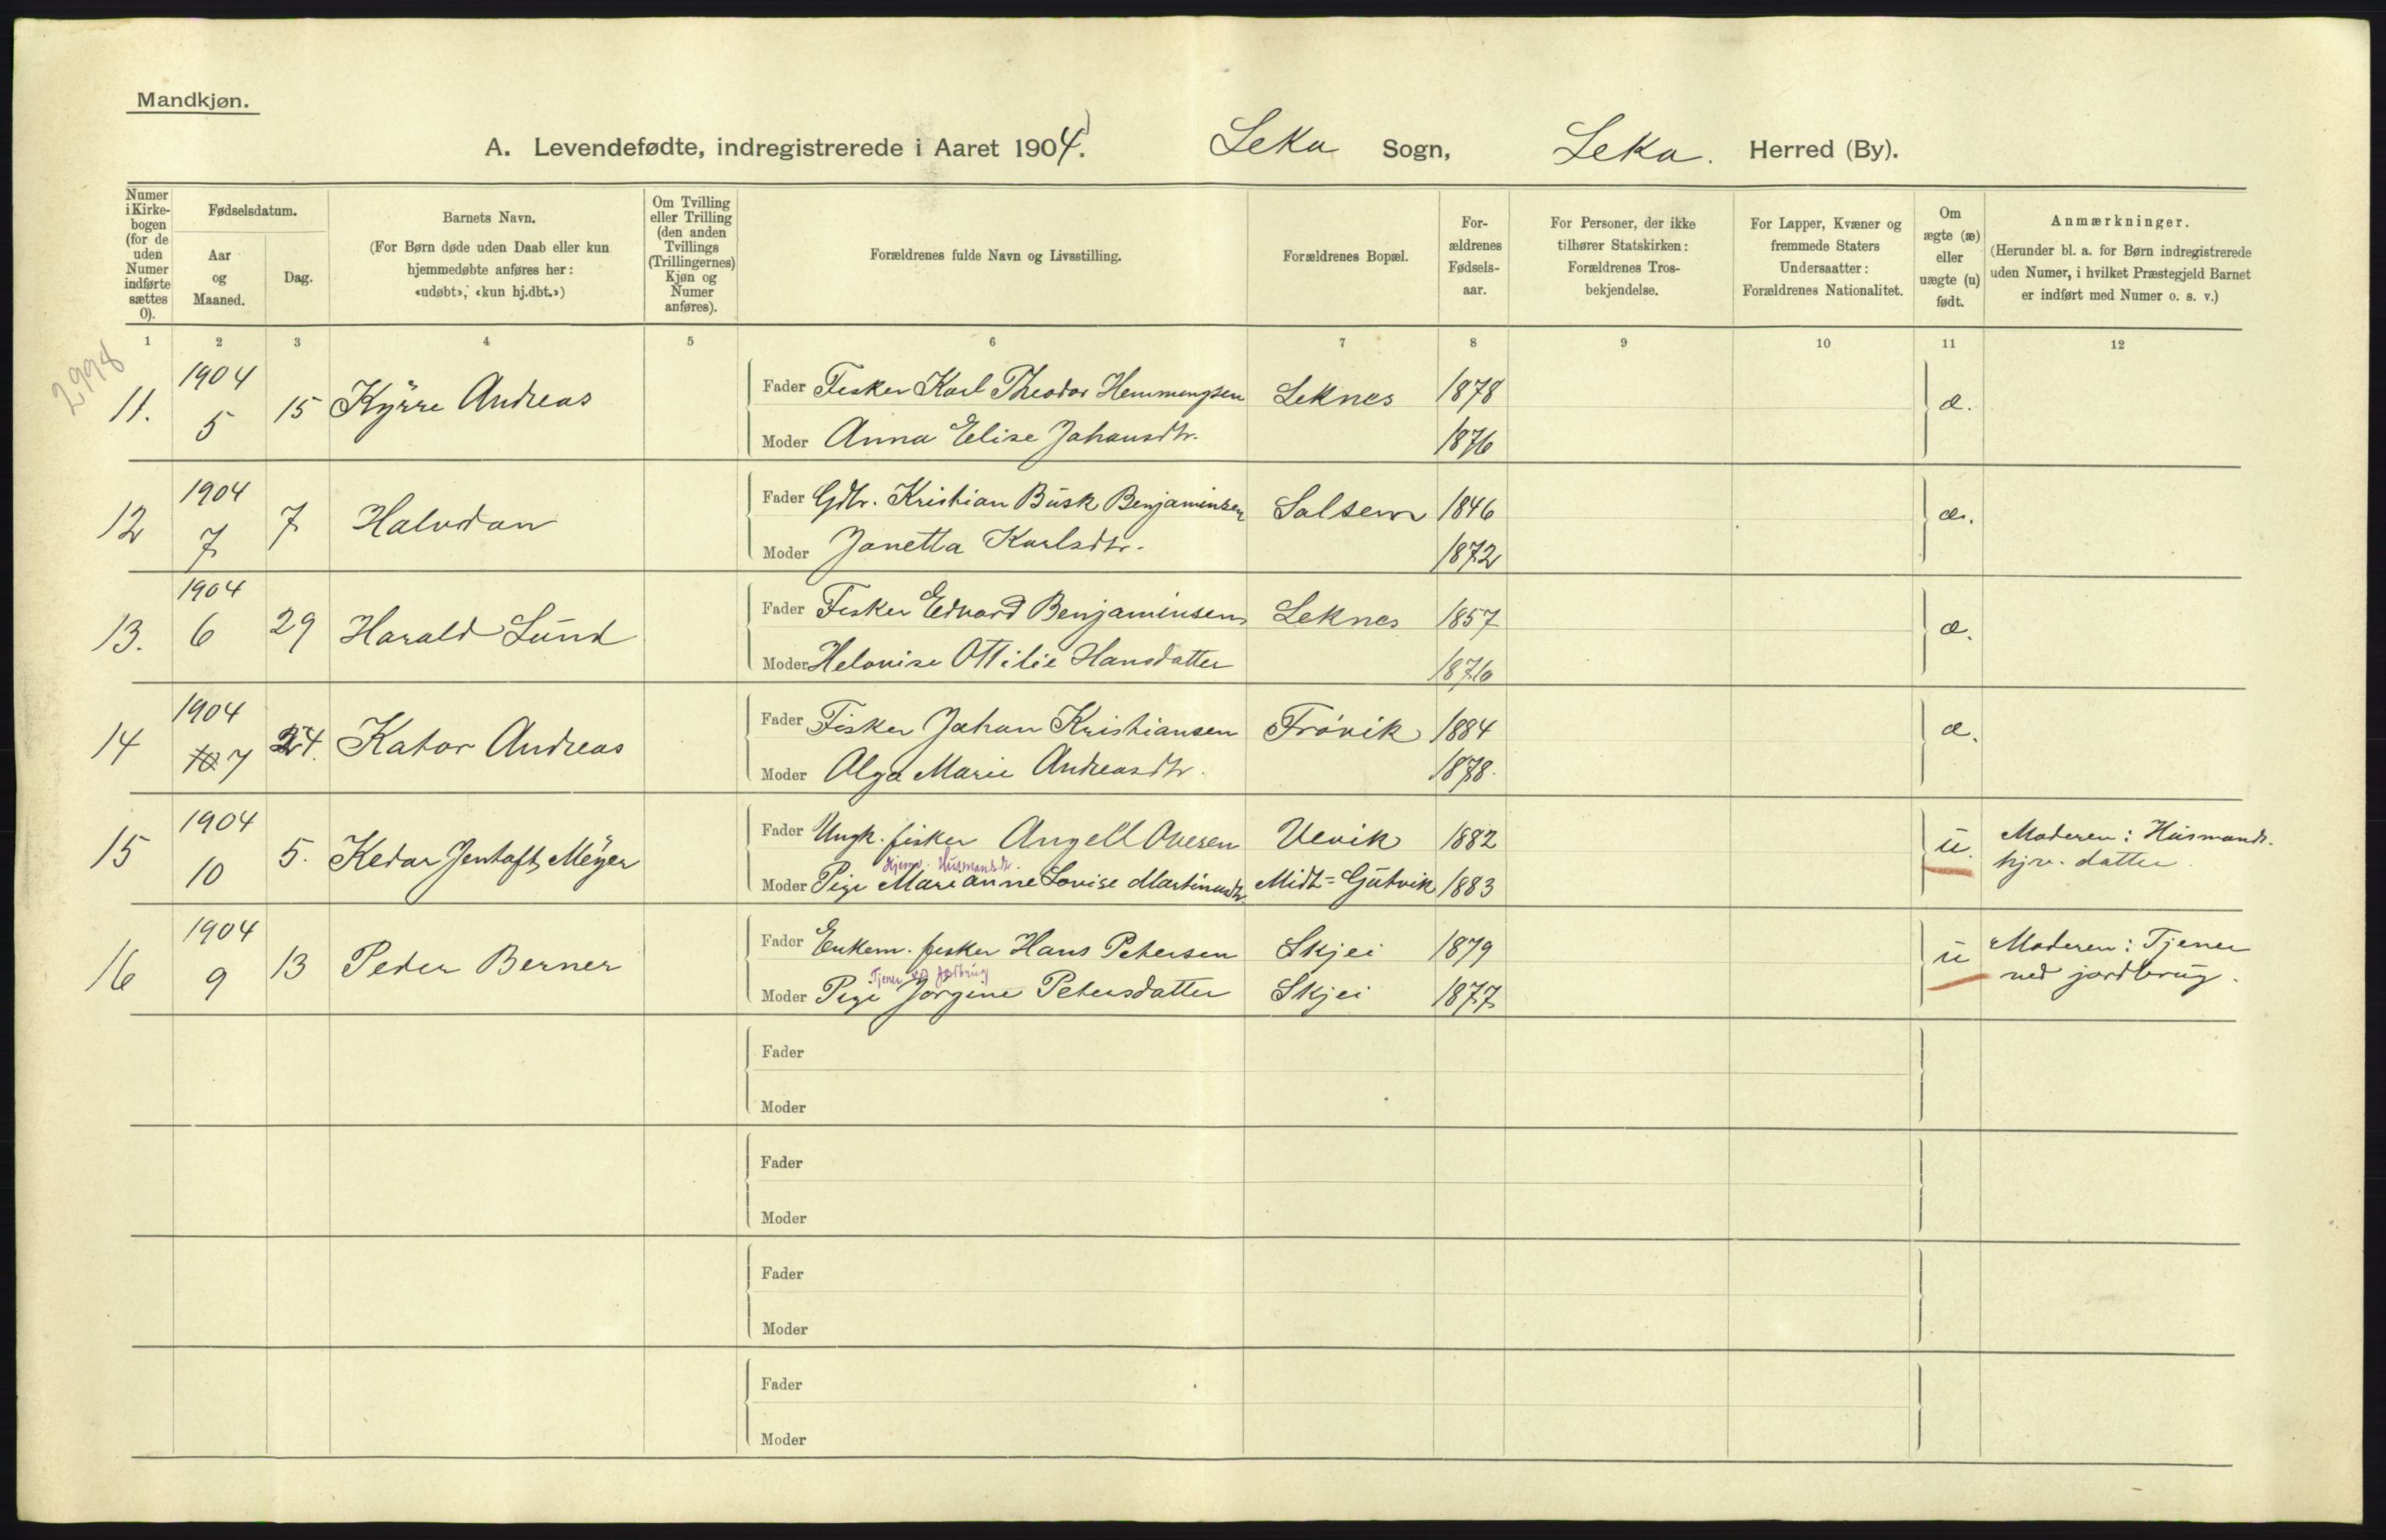 Mandkjøn.
A. Levendefødte, indregistrerede i Aaret 1904. Leka Sogn, Leka. Herred (By).
Numer i Kirke-bogen (for de uden Numer indførte sættes 0).
Fødselsdatum.
Aar og Maaned.
Dag.
Barnets Navn.
(For Børn døde uden Daab eller kun
hjemmedøbte anføres her:
«udøbt», «kun hj.dbt.»)
Om Tvilling
eller Trilling
(den anden
Tvillings
(Trillingernes)
Kjøn og
Numer
anføres).
Forældrenes fulde Navn og Livsstilling.
Forældrenes Bopæl.
For-
ældrenes
Fødsels-
aar.
For Personer, der ikke
tilhører Statskirken:
Forældrenes Tros-
bekjendelse.
For Lapper, Kvæner og
fremmede Staters
Undersaatter:
Forældrenes Nationalitet.
Om
ægte (æ)
eller
uægte (u)
født.
Anmærkninger.
(Herunder bl. a. for Børn indregistrerede
uden Numer, i hvilket Præstegjeld Barnet
er indført med Numer o. s. v.)
1 2 3 4 5 6 7 8 9 10 11 12
2998
11. 1904 5 15 Kyrre Andreas Fader Fisker Karl Theodor Hemmingsen Leknes 1878 æ.
Moder Anna Elise Johansdtr. 1876
12 1904 7 7 Halvdan Fader Gdbr. Kristian Busk Benjaminsen Solsem 1846 æ.
Moder Janetta Karlsdtr. 1872
13. 1904 6 29 Harald Lund Fader Fisker Edvard Benjaminsen Leknes 1857 æ.
Moder Helovise Ottilie Hansdatter 1876
14 1904 10 7 24. Kator Andreas Fader Fisker Johan Kristiansen Frøvik 1884 æ.
Moder Olga Marie Andreasdtr. 1878.
15 1904 10 5. Kedar Jentoft Meyer Fader Ungk. fisker Angell Ovesen Vevik 1882 u. Moderen: Husmands.
hjv. datter.
Hjemv. Husmandsdtr.
Moder Pige Marianne Lovise Martinusdtr. Midt-Gutvik 1883
16 1904 9 13 Peder Berner Fader Enkem. fisker Hans Petersen Skjei 1879 u Moderen: Tjener
ved jordbrug.
Tjener ved jordbrug
Moder Pige Jørgine Petersdatter Skjei 1877
Fader
Moder
Fader
Moder
Fader
Moder
Fader
Moder